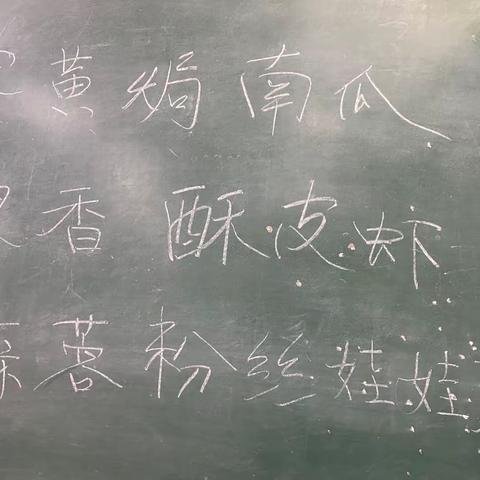 黄焗南瓜
香酥皮虾
蓉粉丝娃娃